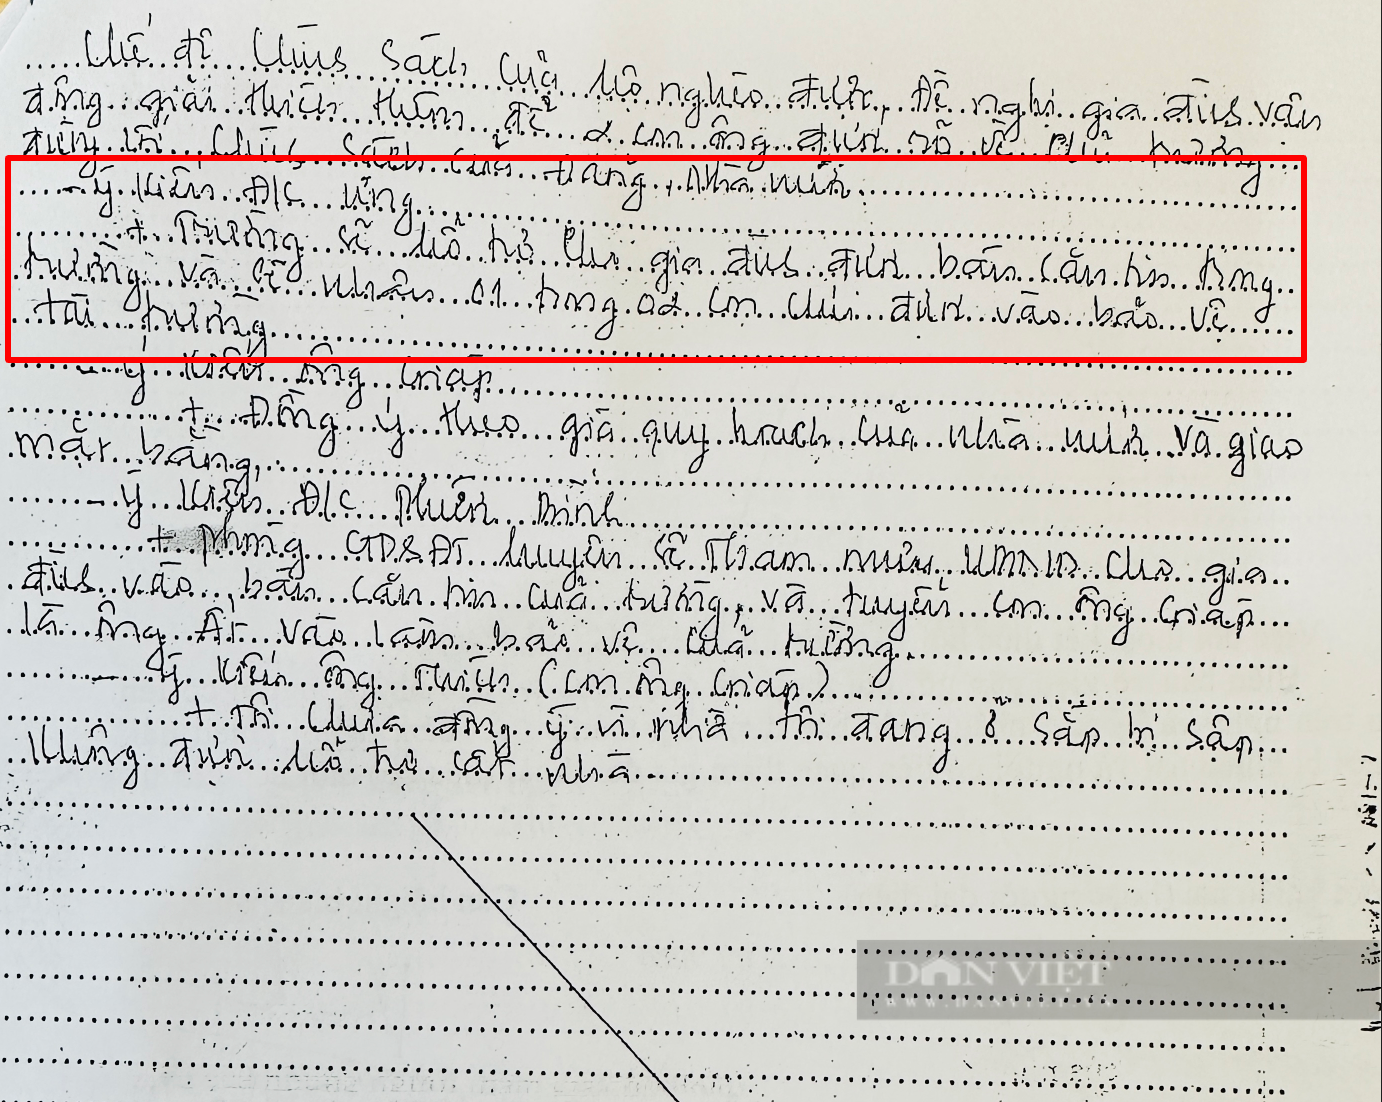 chế độ chính sách của hộ nghèo được, Đề nghị gia đình vận
động giải thích thêm để 2 con ông được rõ về chủ trương
đường lối, chính sách của Đảng, Nhà nước.
- Ý kiến Đ/c ứng
+ Trường sẽ hỗ trợ cho gia đình được bán căn tin trong
trường và sẽ nhận 01 trong 02 con cháu được vào bảo vệ
tại trường
- Ý kiến ông Giáp
+ Đồng ý theo giá quy hoạch của nhà nước và giao
mặt bằng.
- Ý kiến Đ/c Nhuến Bình
+ Phòng GD&ĐT huyện sẽ Tham mưu UBND cho gia
đình vào bán căn tin của trường, và tuyển con ông Giáp
là ông Át vào làm bảo vệ của trường.
- Ý kiến ông Thiên (con ông Giáp)
+ Tôi chưa đồng ý vì nhà tôi đang ở sắp bị sập
không được hỗ trợ cất nhà
DÂN VIỆT
WWW.DANVIET.VN